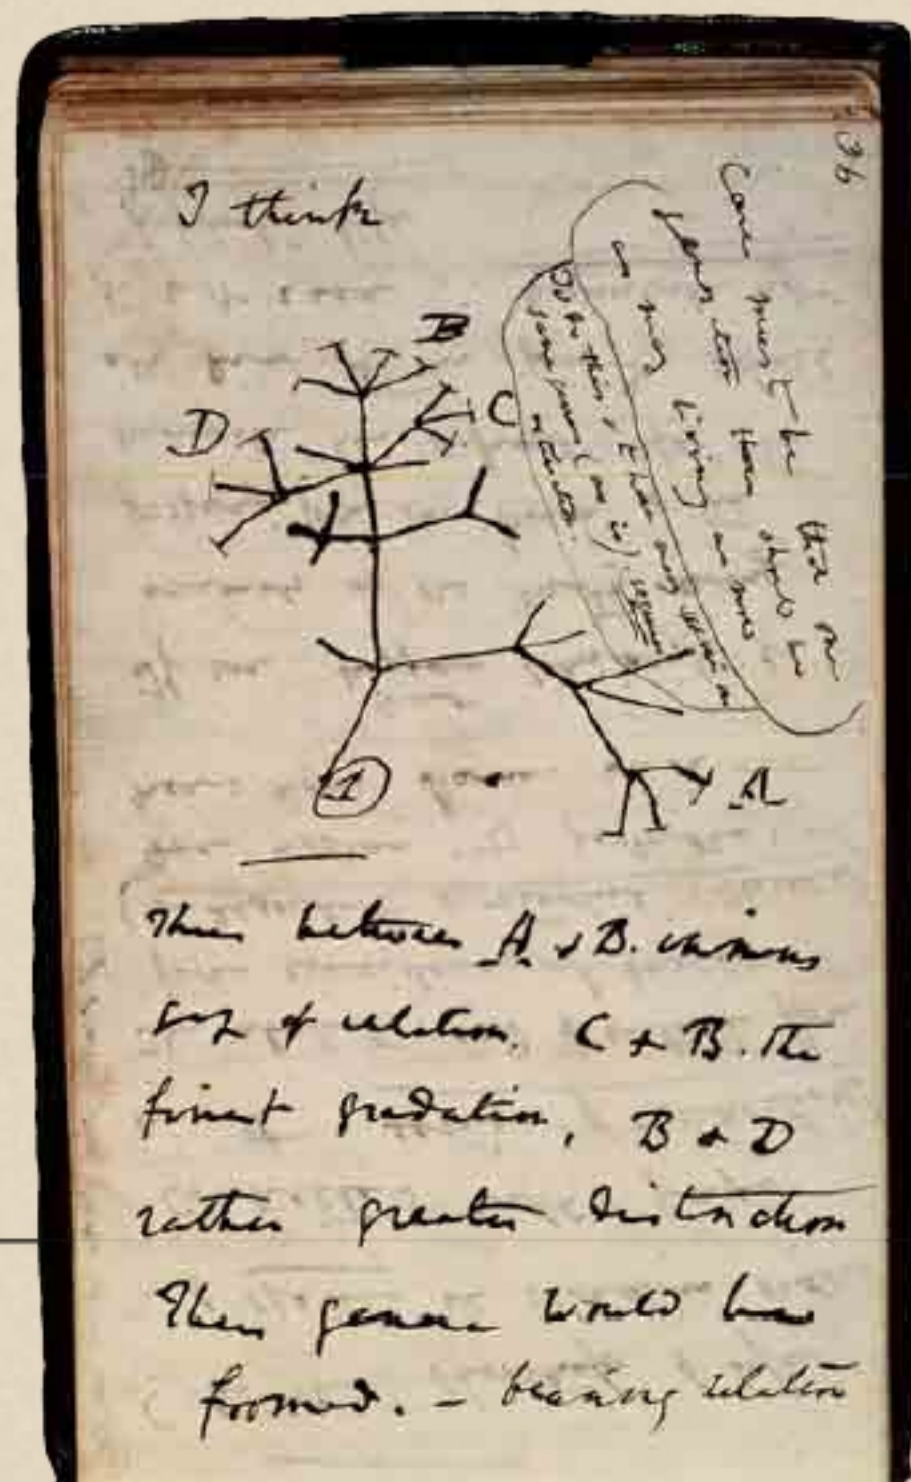 36
I think
Case must be that one
generation then should be
as many living as now
To do this & to have many species in
same genus (as is) requires
extinction.
B
D
C
1
A
Thus between A & B. immens
gap of relation. C & B. The
finest gradation, B & D
rather greater distinction
Thus genera would be
formed. — bearing relation